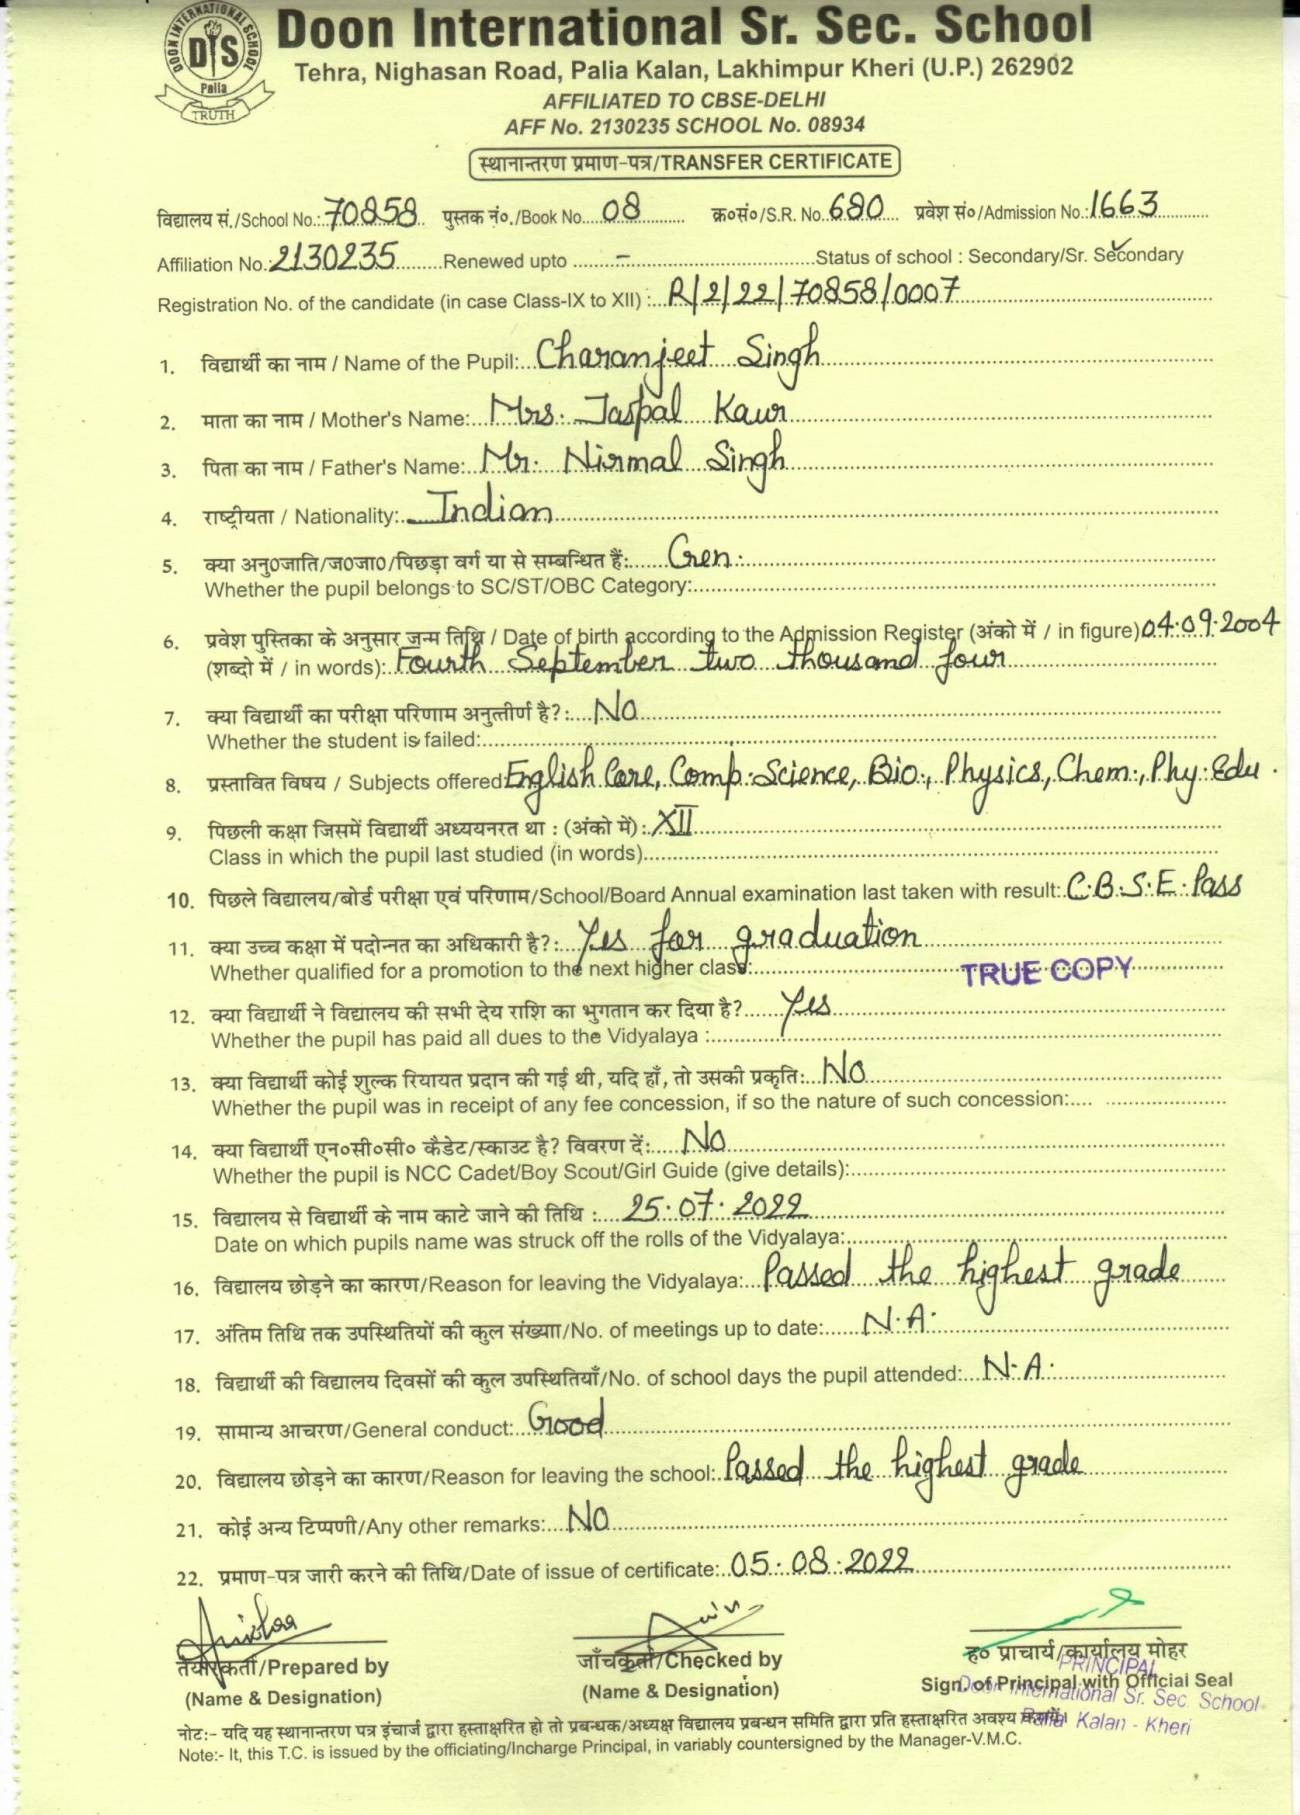 DOON INTERNATIONAL SCHOOL
DIS
Palia
TRUTH
Doon International Sr. Sec. School
Tehra, Nighasan Road, Palia Kalan, Lakhimpur Kheri (U.P.) 262902
AFFILIATED TO CBSE-DELHI
AFF No. 2130235 SCHOOL No. 08934
स्थानान्तरण प्रमाण-पत्र/TRANSFER CERTIFICATE
विद्यालय सं./School No.: 70858 पुस्तक नं०./Book No. 08 क्र०सं०/S.R. No. 680 प्रवेश सं०/Admission No.: 1663
Affiliation No.: 2130235 Renewed upto - Status of school : Secondary/Sr. Secondary
Registration No. of the candidate (in case Class-IX to XII) : R/2/22/70858/0007
1. विद्यार्थी का नाम / Name of the Pupil: Charanjeet Singh
2. माता का नाम / Mother's Name: Mrs. Jaspal Kaur
3. पिता का नाम / Father's Name: Mr. Nirmal Singh
4. राष्ट्रीयता / Nationality: Indian
5. क्या अनु०जाति/ज०जा०/पिछड़ा वर्ग या से सम्बन्धित हैं: Gen.
Whether the pupil belongs to SC/ST/OBC Category:
6. प्रवेश पुस्तिका के अनुसार जन्म तिथि / Date of birth according to the Admission Register (अंको में / in figure) 04.09.2004
(शब्दो में / in words): Fourth September two thousand four
7. क्या विद्यार्थी का परीक्षा परिणाम अनुत्तीर्ण है?: No
Whether the student is failed:
8. प्रस्तावित विषय / Subjects offered: English Core, Comp. Science, Bio., Physics, Chem., Phy. Edu.
9. पिछली कक्षा जिसमें विद्यार्थी अध्ययनरत था : (अंको में) : XII
Class in which the pupil last studied (in words)
10. पिछले विद्यालय/बोर्ड परीक्षा एवं परिणाम/School/Board Annual examination last taken with result: C.B.S.E. Pass
11. क्या उच्च कक्षा में पदोन्नत का अधिकारी है?: Yes for graduation
Whether qualified for a promotion to the next higher class:
TRUE COPY
12. क्या विद्यार्थी ने विद्यालय की सभी देय राशि का भुगतान कर दिया है? Yes
Whether the pupil has paid all dues to the Vidyalaya :
13. क्या विद्यार्थी कोई शुल्क रियायत प्रदान की गई थी, यदि हाँ, तो उसकी प्रकृति: No
Whether the pupil was in receipt of any fee concession, if so the nature of such concession:
14. क्या विद्यार्थी एन०सी०सी० कैडेट/स्काउट है? विवरण दें: No
Whether the pupil is NCC Cadet/Boy Scout/Girl Guide (give details):
15. विद्यालय से विद्यार्थी के नाम काटे जाने की तिथि : 25.07.2022
Date on which pupils name was struck off the rolls of the Vidyalaya:
16. विद्यालय छोड़ने का कारण/Reason for leaving the Vidyalaya: Passed the highest grade
17. अंतिम तिथि तक उपस्थितियों की कुल संख्याा/No. of meetings up to date: N.A.
18. विद्यार्थी की विद्यालय दिवसों की कुल उपस्थितियाँ/No. of school days the pupil attended: N.A.
19. सामान्य आचरण/General conduct: Good
20. विद्यालय छोड़ने का कारण/Reason for leaving the school: Passed the highest grade
21. कोई अन्य टिप्पणी/Any other remarks: NO
22. प्रमाण-पत्र जारी करने की तिथि/Date of issue of certificate: 05.08.2022
तैयारकर्ता/Prepared by जाँचकर्ता/Checked by ह० प्राचार्य/कार्यालय मोहर
(Name & Designation) (Name & Designation) Sign. of Principal with Official Seal
PRINCIPAL
Doon International Sr. Sec. School
Palia Kalan - Kheri
नोट:- यदि यह स्थानान्तरण पत्र इंचार्ज द्वारा हस्ताक्षरित हो तो प्रबन्धक/अध्यक्ष विद्यालय प्रबन्धन समिति द्वारा प्रति हस्ताक्षरित अवश्य
Note:- It, this T.C. is issued by the officiating/Incharge Principal, in variably countersigned by the Manager-V.M.C.